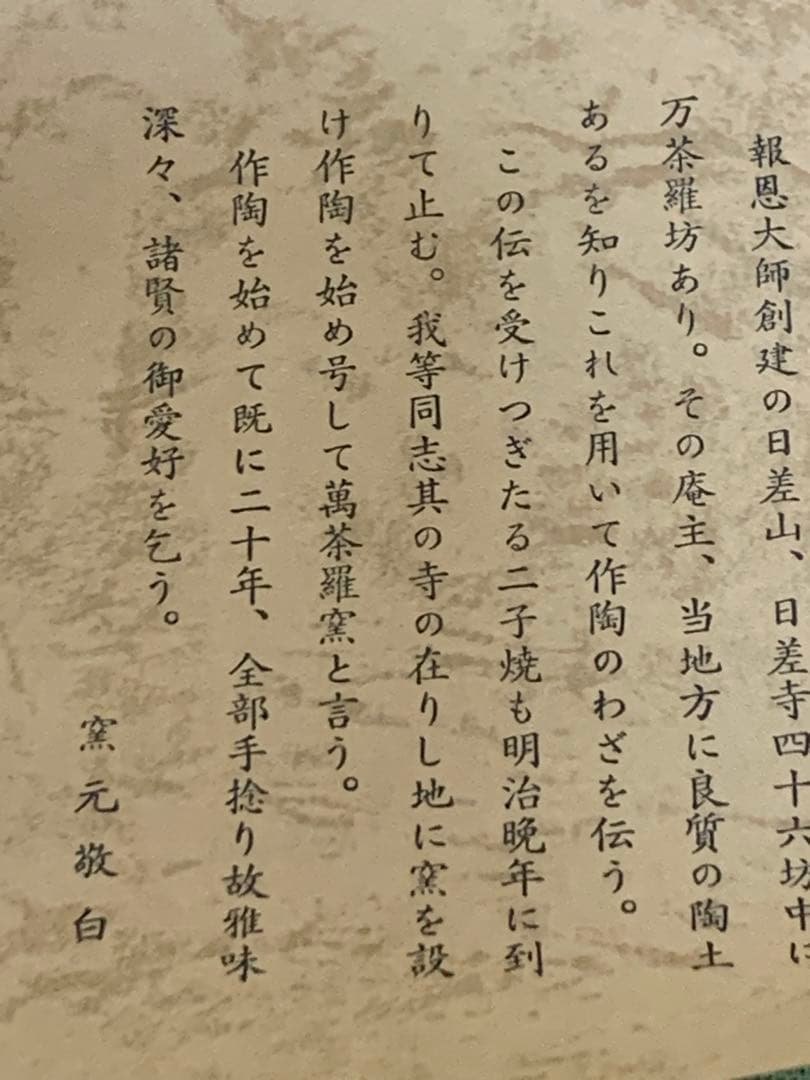 報恩大師創建の日差山、日差寺四十六坊中に
万茶羅坊あり。その庵主、当地方に良質の陶土
あるを知りこれを用いて作陶のわざを伝う。
この伝を受けつぎたる二子焼も明治晩年に到
りて止む。我等同志其の寺の在りし地に窯を設
け作陶を始め号して萬茶羅窯と言う。
作陶を始めて既に二十年、全部手捻り故雅味
深々、諸賢の御愛好を乞う。
窯元敬白